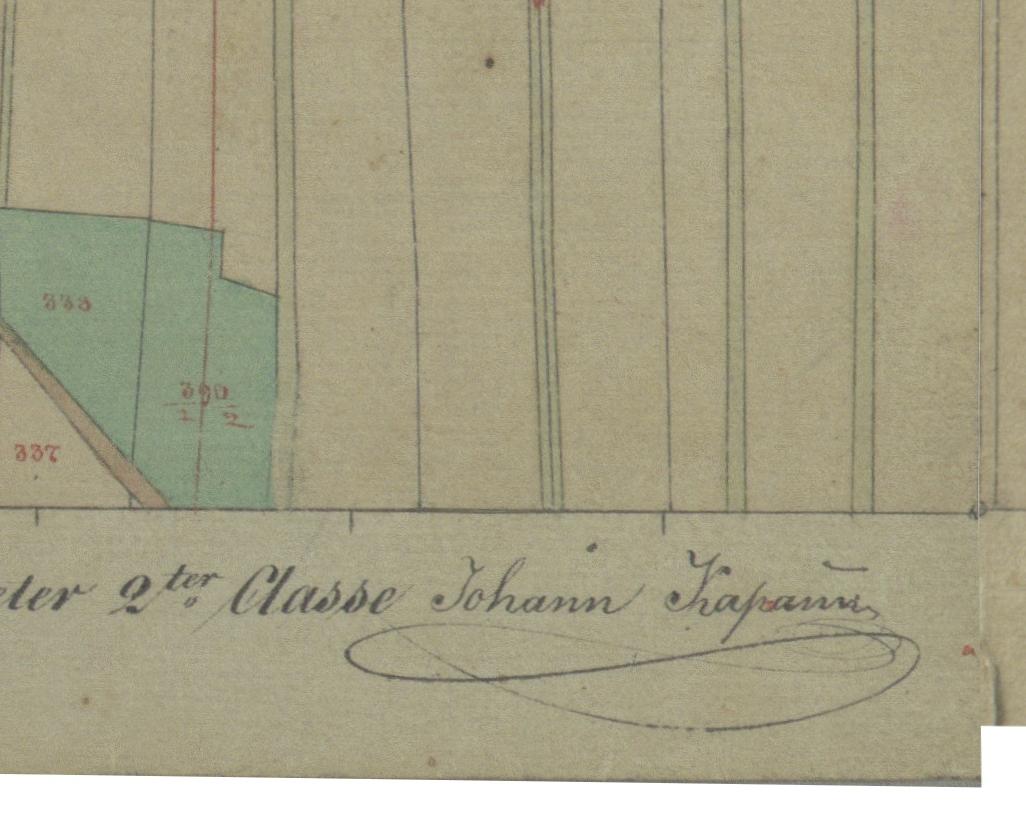 333
390
1 2
337
eter 2ter Classe Johann